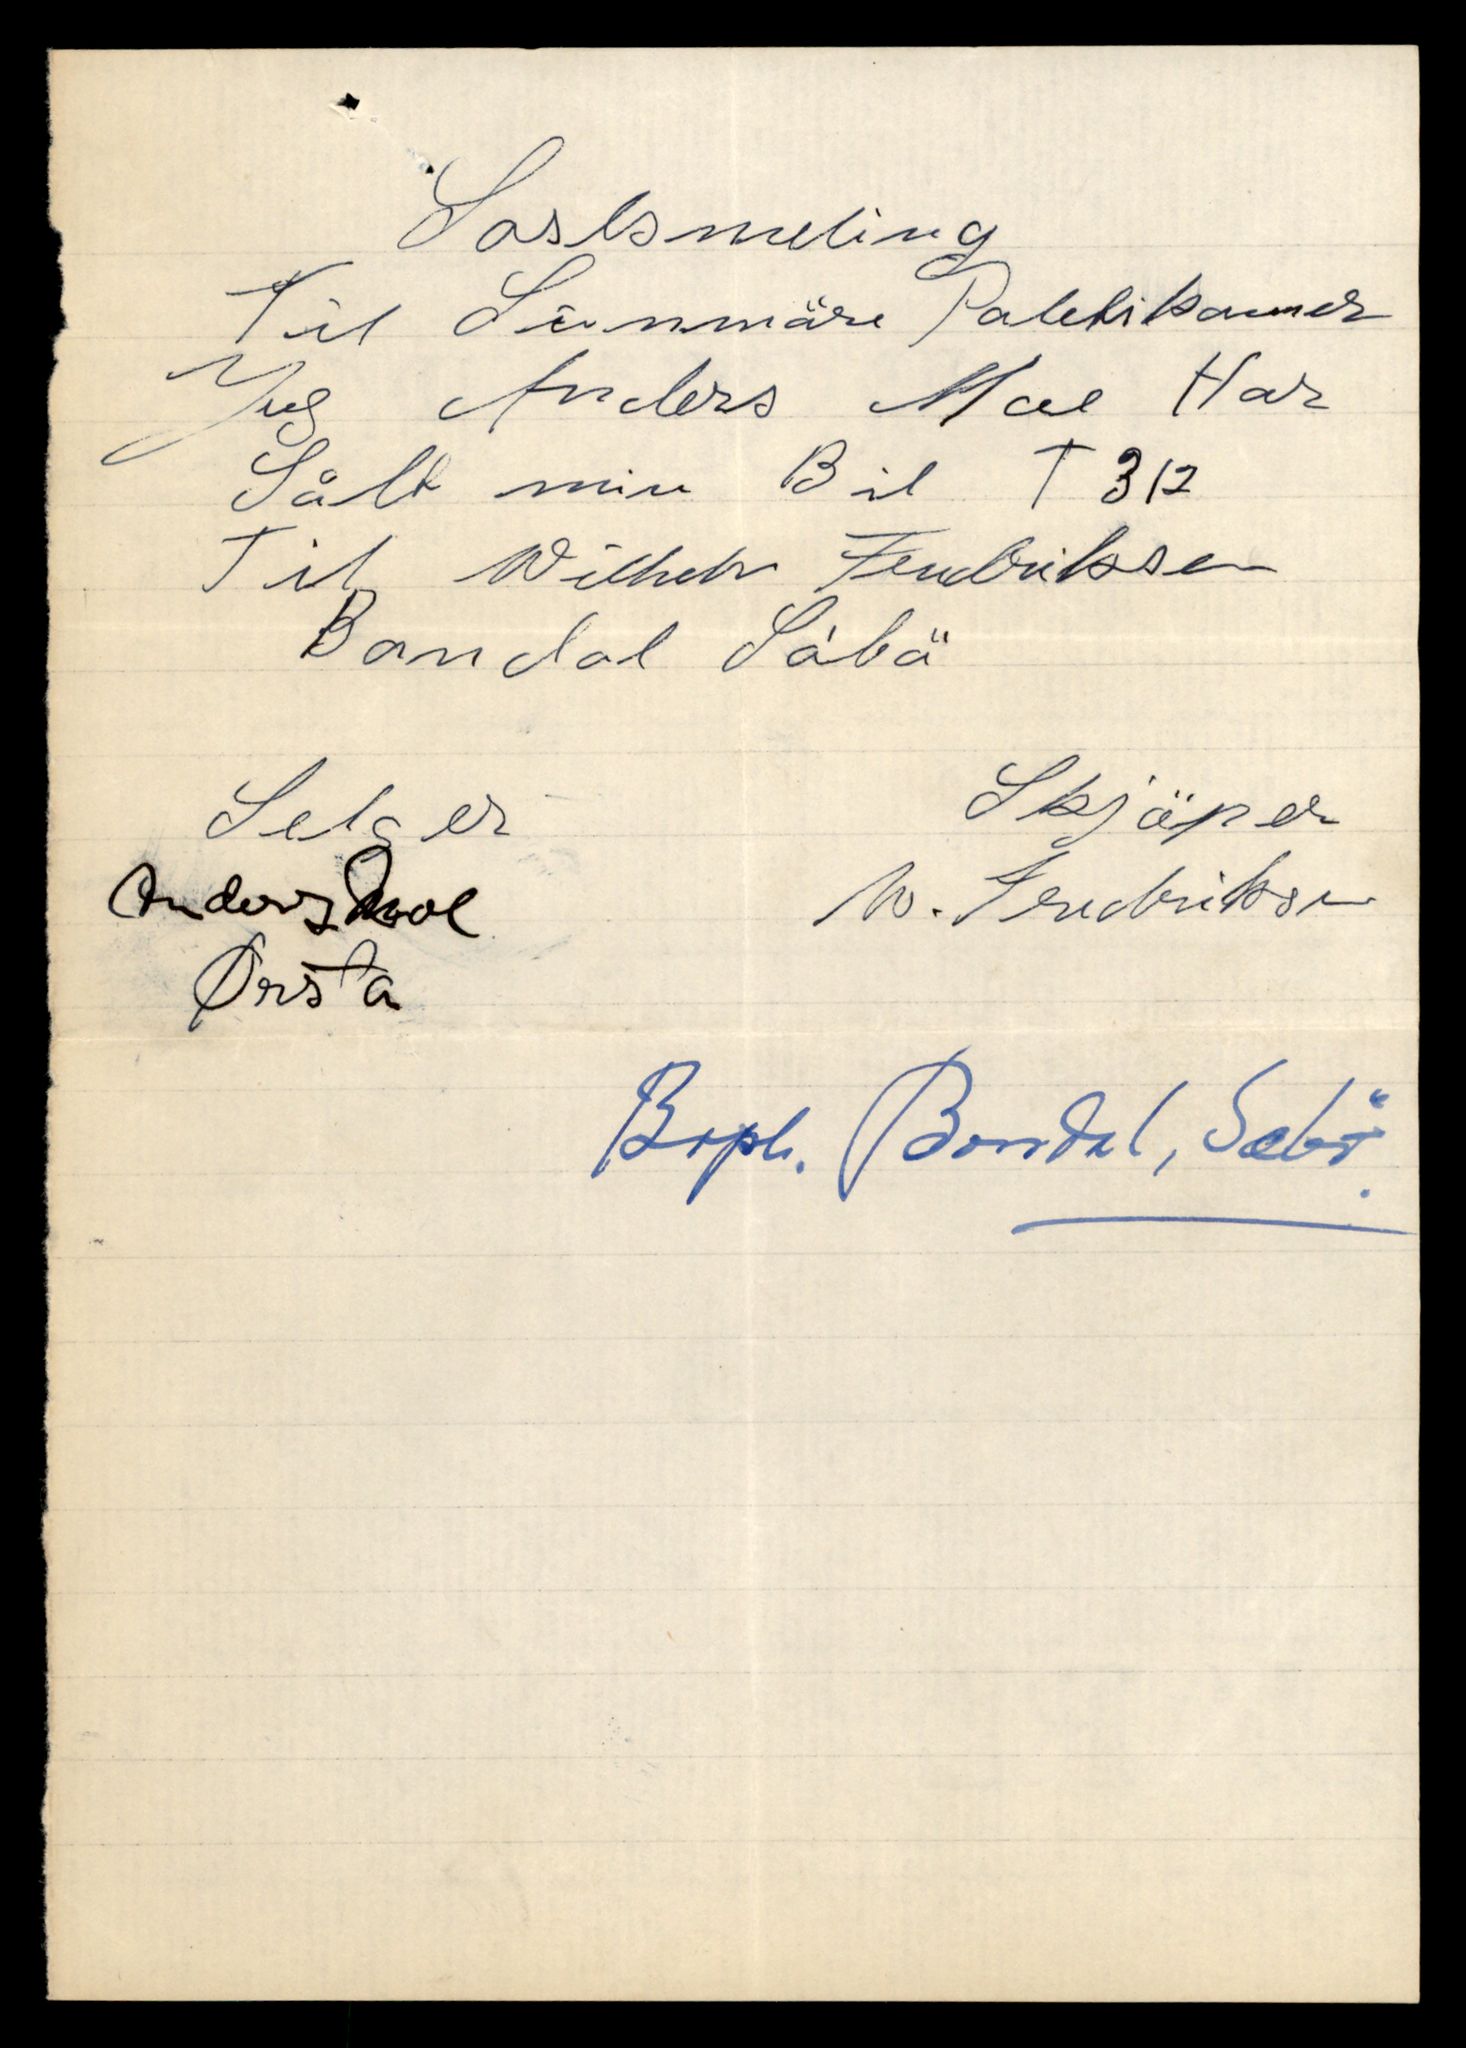 Salsmeling
Til Sunnmäre Politikamer
Jeg Anders Moe Har
Sålt min Bil T 312
Til Wilhelm Fredriksen
Bondal Säbö
Selger
Skjöper
Anders Moe
W. Fredriksen
Ørsta
Bopl. Bondal, Sæbö.